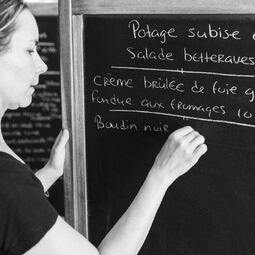 Potage subise
Salade betteraves
Crème brûlée de foie g
fondue aux fromages 10
Boudin noir